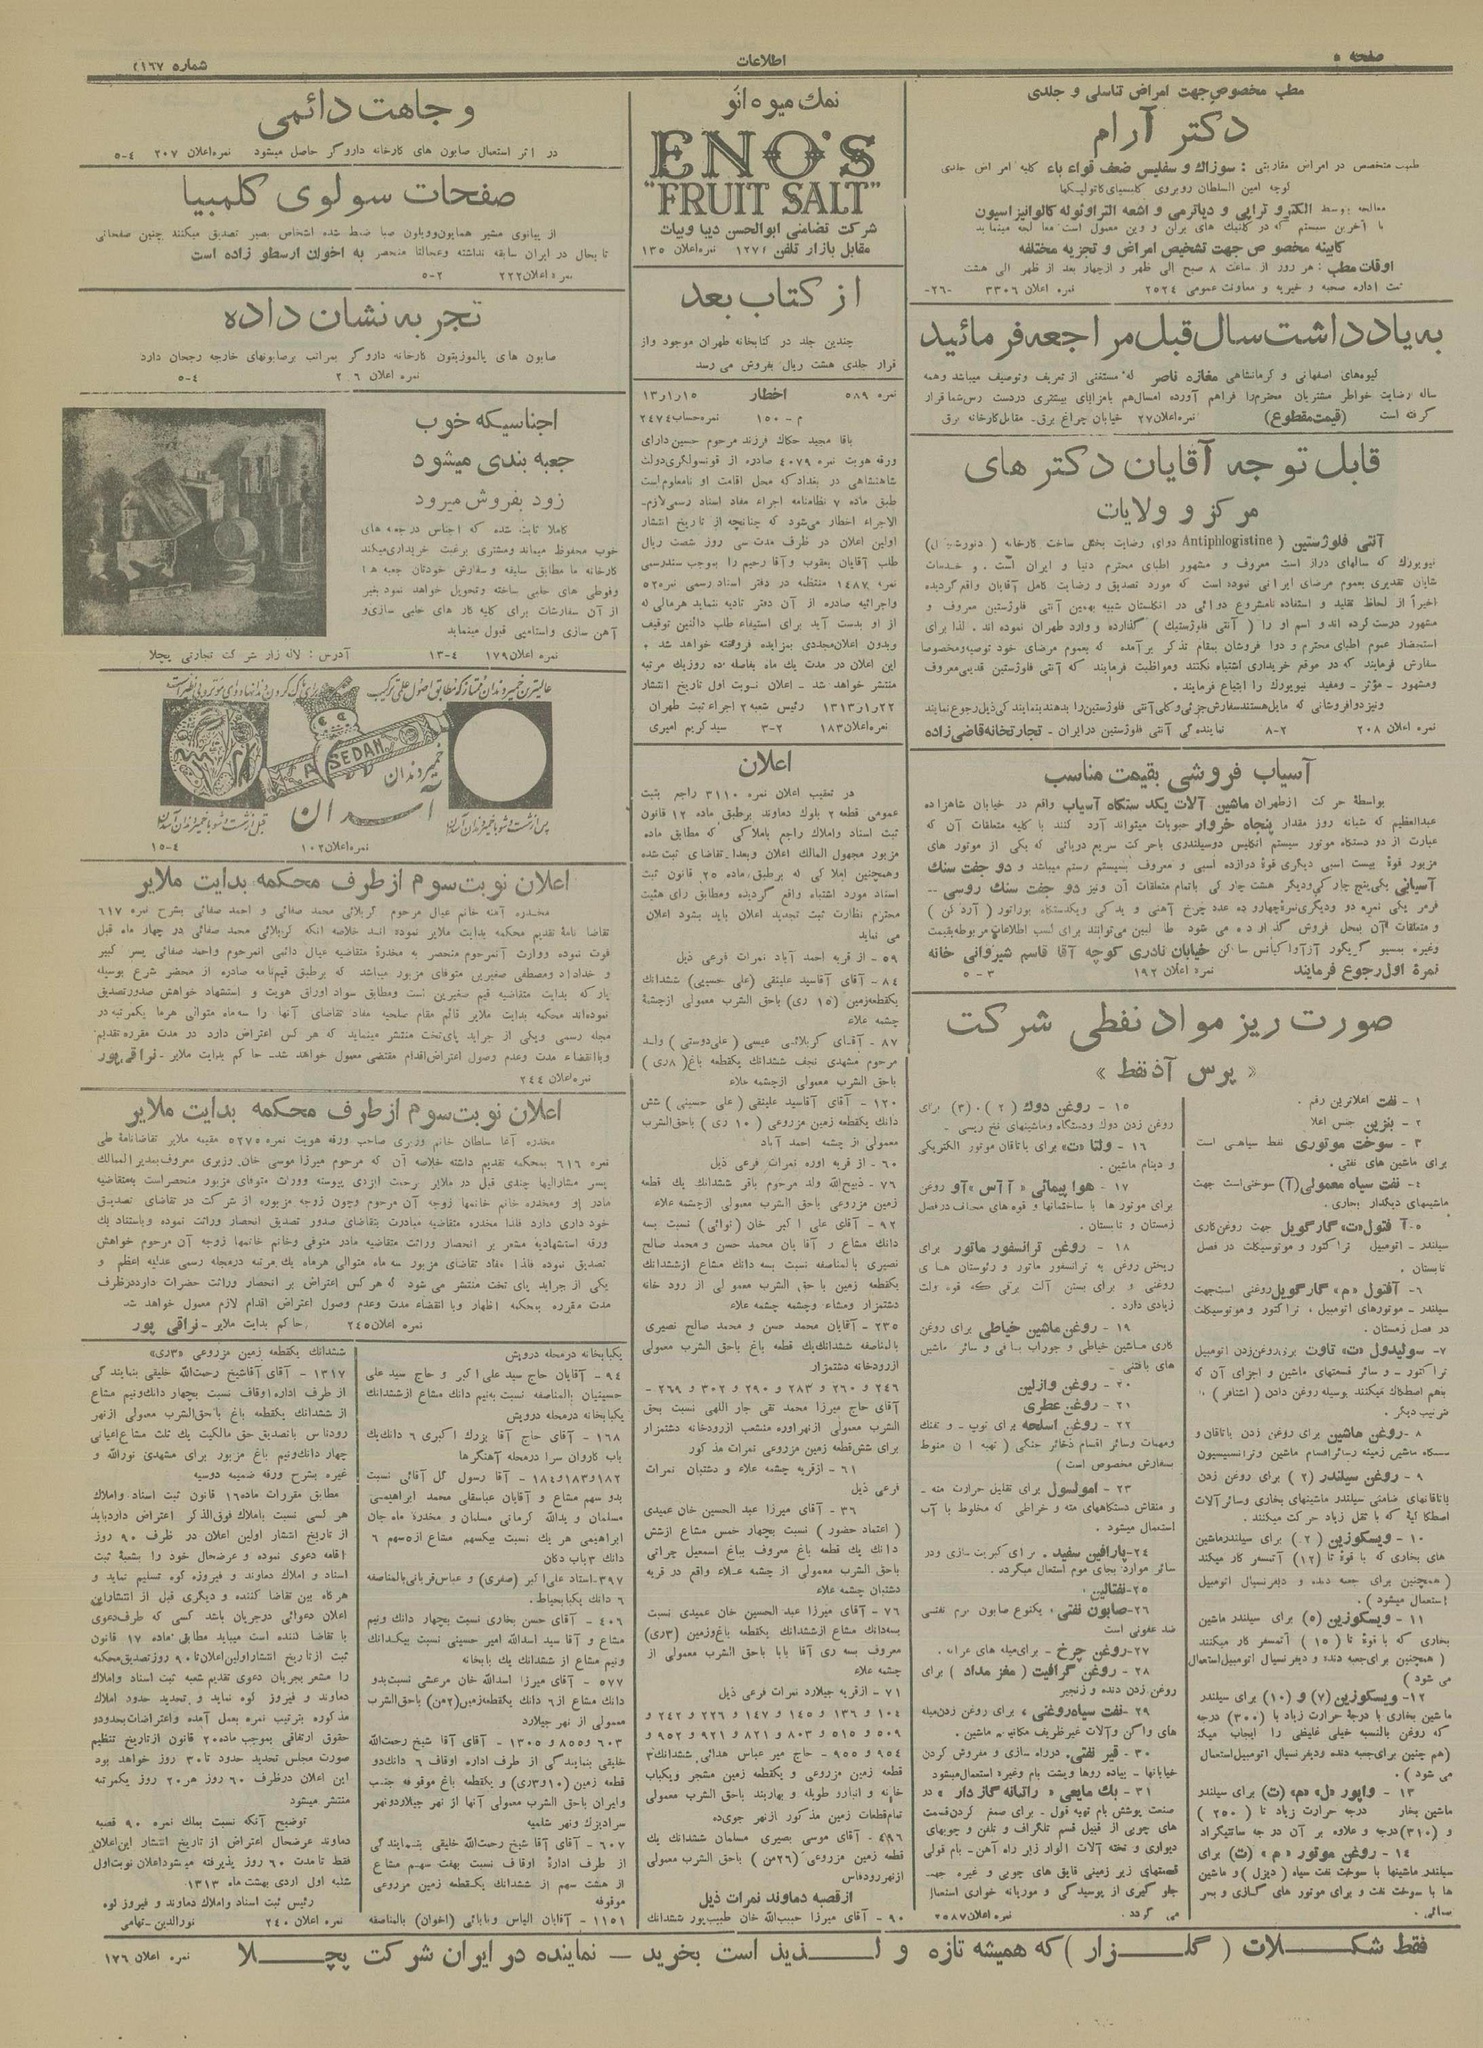 صفحه ۵
اطلاعات
شماره ۲۱۶۷
مطب مخصوص جهت امراض تناسلی و جلدی
دکتر آرام
طبیب متخصص در امراض مقاربتی : سوزاك و سفلیس ضعف قواء باء کلیه امراض جلدی
لوچه امین السلطان روبروی کلیسای کاتولیکها
معالجه بوسط الکترو تراپی و دیاترمی و اشعه التراوئوله کالوانیزاسیون
با آخرین سیستم که در کلنیك های برلن و وین معمول است معالجه مینماید
کابینه مخصوص جهت تشخیص امراض و تجزیه مختلفه
اوقات مطب : هر روز از ساعت ۸ صبح الی ظهر و ازچهار بعد از ظهر الی هشت
ثبت اداره صحیه و خیریه و معاونت عمومی ۲۵۲۴ نمره اعلان ۳۳۰۶ -۲۶-
به یاد داشت سال قبل مراجعه فرمائید
گیوه‌های اصفهانی و کرمانشاهی مغازه ناصر که مستغنی از تعریف وتوصیف میباشد وهمه
ساله رضایت خواطر مشتریان محترم را فراهم آورده امسال هم بامزایای بیشتری دردست رس شما قرار
گرفته است (قیمت مقطوع) نمره اعلان ۲۷ خیابان چراغ برق- مقابل کارخانه برق
قابل توجه آقایان دکتر های
مرکز و ولایات
آنتی فلوژستین ( Antiphlogistine دوای رضایت بخش ساخت کارخانه
نیویورك که سالهای دراز است معروف و مشهور اطبای محترم دنیا و ایران است . و خدمات
شایان تقدیری بعموم مرضای ایرانی نموده است که مورد تصدیق و رضایت کامل آقایان واقع گردیده
اخیراً از لحاظ تقلید و استفاده نامشروع دوائی در انگلستان شبیه بهمین آنتی فلوژستین معروف و
مشهور درست کرده اند و اسم او را ( آنتی فلوژستیك ) گذارده و وارد طهران نموده اند . لذا برای
استحضار عموم اطبای محترم و دوا فروشان بمقام تذکر برآمده که بعموم مرضای خود توصیه ومخصوصا
سفارش فرمایند که در موقع خریداری اشتباه نکنند ومواظبت فرمایند که آنتی فلوژستین قدیمی معروف
ومشهور - مؤثر - ومفید نیویورك را ابتیاع فرمایند .
ونیز دوافروشانی که مایل هستند سفارش جزئی و کلی آنتی فلوژستین را بدهند بنمایندگی ذیل رجوع نمایند
نمره اعلان ۲۰۸ ۲-۸ نماینده گی آنتی فلوژستین در ایران - تجارتخانه قاضی زاده
آسیاب فروشی بقیمت مناسب
بواسطهٔ حرکت از طهران ماشین آلات یکد ستگاه آسیاب واقع در خیابان شاهزاده
عبدالعظیم که شبانه روز مقدار پنجاه خروار حبوبات میتواند آرد کنند با کلیه متعلقات آن که
عبارت از دو دستگاه موتور سیستم انگلیس دوسیلندری باحرکت سریع دورانی که یکی از موتور های
مزبور قوهٔ بیست اسبی دیگری قوهٔ دوازده اسبی و معروف بسیستم رستم میباشد و دو جفت سنك
آسیابی یکی پنج چارکی ودیگر هشت چارکی باتمام متعلقات آن ونیز دو جفت سنك روسی --
وغیره بمسیو گریگور آزآواکیانس ساکن خیابان نادری کوچه آقا قاسم شیروانی خانه
نمرهٔ اول رجوع فرمایند نمره اعلان ۱۹۲ ۳-۵
صورت ریز مواد نفطی شرکت
« پرس آذنفط »
۱ - نفت اعلاترین رقم .
۲ - بنزین جنس اعلا
۳ - سوخت موتوری نفط سیاهی است
برای ماشین های نفتی .
۴- نفت سیاه معمولی (آ) سوختی است جهت
ماشینهای دیگدار بخاری.
۵- آفتول «ت» گارگویل جهت روغن کاری
سیلندر - اتومبیل تراکتور و موتوسیکلت در فصل
تابستان .
۶- آفتول «م» گارگویل روغنی است جهت
سیلندر - موتورهای اتومبیل، تراکتور و موتوسیکلت
در فصل زمستان.
۷- سولیدول «ت» تاوت برای روغن زدن اتومبیل
تراکتور - و سائر قسمتهای ماشین و اجزای آن که
بهم اصطکاك میکنند بوسیله روغن دادن ( اشتافر )
ترتیب دیگر .
۸ - روغن ماشین برای روغن زدن یاتاقان و
۹ - روغن سیلندر (۲) برای روغن زدن
یاتاقانهای ضامنی سیلندر ماشینهای بخاری وسائر آلات
اصطکاکیة که با ثقل زیاد حرکت میکنند .
۱۰ - ویسکوزین (۲) برای سیلندر ماشین
های بخاری که با قوهٔ تا (۱۲) آتمسفر کار میکند
( همچنین برای جعبه دنده و دیفرنسیال اتومبیل
استعمال میشود ) .
۱۱ - ویسکوزین (۵) برای سیلندر ماشین
بخاری که با قوهٔ تا (۱۵) آتمسفر کار میکنند
( همچنین برای جعبه دنده و دیفرنسیال اتومبیل استعمال
می شود )
۱۲- ویسکوزین (۷) و (۱۰) برای سیلندر
ماشین بخاری با درجهٔ حرارت زیاد با (۳۰۰) درجه
که روغن بالنسبه خیلی غلیظی را ایجاب میکند
(هم چنین برای جعبه دنده ودیفرنسیال اتومبیل استعمال
می شود ) .
۱۳ - واپور «ل» «م» (ت) برای سیلندر
ماشین بخار درجه حرارت زیاد تا (۲۵۰)
و (۳۱۰) درجه و علاوه بر آن درجه سانتیگراد
۱۴ - روغن موتور «م» (ت) برای
سیلندر ماشینها با سوخت نفت سیاه (دیزل) و ماشین
ها با سوخت نفت و برای موتور های گازی و بمر
۱۵ - روغن دوك (۲) . (۳) برای
روغن زدن دوك ودستگاه وماشینهای نخ ریسی .
۱۶ - ولتا «ت» برای یاتاقان موتور الکتریکی
و دینام ماشین .
۱۷ - هوا پیمائی « آ آس » آو روغن
برای موتور ها با ساختمانها و قوه های مختلف در فصل
زمستان و تابستان .
۱۸ - روغن ترانسفور ماتور برای
ریختن روغن به ترانسفور ماتور و رئوستان های
روغنی و برای بستن آلت برقی که قوه ولت
زیادی دارد .
۱۹ - روغن ماشین خیاطی برای روغن
کاری ماشین خیاطی و جوراب بافی و سائر ماشین
های بافتنی .
۲۰ - روغن وازلین
۲۱ - روغن عطری
۲۲ - روغن اسلحه برای توپ - و تفنك
ومهمات وسائر اقسام ذخائر جنگی ( تهیه آن منوط
بسفارش مخصوص است )
۲۳ - امولسول برای تقلیل حرارت مته -
و منقاش دستگاههای مته و خراطی که مخلوط با آب
استعمال میشود .
۲۴- پارافین سفید . برای کبریت سازی ودر
سائر موارد بجای موم استعمال میگردد .
۲۵- نفتالین
۲۶- صابون نفتی ، یکنوع صابون نرم نفتی
ضد عفونی است
۲۷- روغن چرخ - برای میله های عرابه .
۲۸ - روغن گرافیت ( مغز مداد ) برای
روغن زدن دنده و زنجیر
۲۹- نفت سیاه روغنی ، برای روغن زدن میله
های واگن وآلات غیر ظریف مکانیه ماشین .
۳۰ - قیر نفتی . در راه سازی و مفروش کردن
خیابانها - پیاده روها وپشت بام وغیره استعمال میشود
۳۱ - بك مایعی « راتیانه گاز دار » در
صنعت پوشش بام توپه قول - برای صمغ کردن قسمت
های چوبی از قبیل قسم تلگراف و تلفن و چوبهای
دیواری و تخته آلات الوار زیر راه آهن - بام قولی
قسمتهای زیر زمینی قایق های چوبی و غیره جهت
جلو گیری از پوسیدگی و موریانه خواری استعمال
می گردد . نمره اعلان ۲۵۸۷
نمك میوه انو
ENO'S
"FRUIT SALT"
شرکت تضامنی ابوالحسن دیبا وبیات
مقابل بازار تلفن ۱۲۷۶ نمره اعلان ۱۳۵
از کتاب بعد
چندین جلد در کتابخانه طهران موجود واز
قرار جلدی هشت ریال بفروش می رسد
نمره ۵۸۹ اخطار ۱۳/۱/۱۵
م - ۱۵۰ نمره حساب ۲۴۷۴
باقا مجید حکاك فرزند مرحوم حسین دارای
ورقه هویت نمره ۴۰۷۹ صادره از قونسولگری دولت
شاهنشاهی در بغداد که محل اقامت او نامعلوم است
طبق ماده ۷ نظامنامه اجراء مفاد اسناد رسمی لازم-
الاجراء اخطار می‌شود که چنانچه از تاریخ انتشار
اولین اعلان در ظرف مدت سی روز شصت ریال
طلب آقایان یعقوب وآقا رحیم را بموجب سند رسمی
نمره ۱۴۸۷ منتظمه در دفتر اسناد رسمی نمره ۵۲
واجرائیه صادره از آن دفتر تادیه ننماید هرمالی که
از او بدست آید برای استیفاء طلب دائنین توقیف
وبدون اعلان مجددی بمزایده فروخته خواهد شد .
این اعلان در مدت یك ماه بفاصله ده روز یك مرتبه
منتشر خواهد شد - اعلان نوبت اول تاریخ انتشار
۱۳۱۳/۱/۲۲ رئیس شعبه ۲ اجراء ثبت طهران
نمره اعلان ۱۸۳ ۲-۳ سید کریم امیری
اعلان
در تعقیب اعلان نمره ۳۱۱۰ راجع بثبت
عمومی قطعه ۲ بلوك دماوند برطبق ماده ۱۲ قانون
ثبت اسناد واملاك راجع باملاکی که مطابق ماده
مزبور مجهول المالك اعلان وبعدا تقاضای ثبت شده
وهمچنین املاکی که برطبق ماده ۲۵ قانون ثبت
اسناد مورد اشتباه واقع گردیده ومطابق رای هیئت
محترم نظارت ثبت تجدید اعلان باید بشود اعلان
می نماید
۵۹- از قریه احمد آباد نمرات فرعی ذیل
۸۴ - آقای آقاسید علینقی (علی حسینی) ششدانك
یکقطعه زمین (۱۵ ری) باحق الشرب معمولی ازچشمه
چشمه علاء
۸۷ - آقای کربلائی عیسی (علی دوستی) ولد
مرحوم مشهدی نجف ششدانك یکقطعه باغ (۸ ری)
باحق الشرب معمولی ازچشمه علاء
۱۲۰ - آقای آقاسید علینقی ( علی حسینی ) شش
دانك یکقطعه زمین مزروعی (۱۰ ری) باحق الشرب
معمولی از چشمه احمد آباد
۶۰ - از قریه اوره نمرات فرعی ذیل
۷۶ - ذبیح الله ولد مرحوم باقر ششدانك یك قطعه
زمین مزروعی باحق الشرب معمولی ازچشمه علاء
۹۲ - آقای علی اکبر خان (نوائی) نسبت بسه
دانك مشاع و آقایان محمد حسن و محمد صالح
نصیری بالمناصفه نسبت بسه دانك مشاع از ششدانك
یکقطعه زمین با حق الشرب معمولی از رود خانه
دشتمزار ومشاء وچشمه چشمه علاء
۲۳۵ - آقایان محمد حسن و محمد صالح نصیری
بالمناصفه ششدانك یك قطعه باغ باحق الشرب معمولی
ازرودخانه دشتمزار
۲۴۶ و ۲۶۰ و ۲۸۳ و ۲۹۰ و ۳۰۲ و ۲۶۹ -
آقای حاج میرزا محمد تقی جار اللهی نسبت بحق
الشرب معمولی ازنهر اوره منشعب ازرودخانه دشتمزار
برای شش قطعه زمین مزروعی نمرات مذکور
۶۱ - ازقریه چشمه علاء و دشتبان نمرات
فرعی ذیل
۳۶ - آقای میرزا عبد الحسین خان عمیدی
( اعتماد حضور ) نسبت بچهار خمس مشاع ازشش
دانك یك قطعه باغ معروف بباغ اسمعیل چراتی
باحق الشرب معمولی از چشمه علاء واقع در قریه
دشتبان چشمه علاء
۷۶ - آقای میرزا عبد الحسین خان عمیدی نسبت
بسه دانك مشاع ازششدانك یکقطعه باغ وزمین (۳ ری)
معروف بسه ری آقا بابا باحق الشرب معمولی از
چشمه علاء
۷۱ - ازقریه جیلارد نمرات فرعی ذیل
۱۰۴ و ۱۳۶ و ۱۴۵ و ۱۴۷ و ۲۲۶ و ۲۴۲ و
۵۰۹ و ۵۱۵ و ۸۰۳ و ۸۲۱ و ۹۲۱ و ۹۵۲ و
۹۵۴ و ۹۵۵ - حاج میر عباس هدائی ششدانك ۳
قطعه زمین مزروعی و یکقطعه زمین مشجر ویکباب
خانه و انبار و طویله و بهاربند باحق الشرب معمولی
تمام قطعات زمین مذکور ازنهر جوی ده
۴۹۶ - آقای موسی بصیری مسلمان ششدانك یك
قطعه زمین مزروعی (۲۶ من) باحق الشرب معمولی
ازنهر رودفاس
ازقصبه دماوند نمرات ذیل
۹۰ - آقای میرزا حبیب الله خان طبیب پور ششدانك
وجاهت دائمی
در اثر استعمال صابون های کارخانه داروگر حاصل میشود نمره اعلان ۲۰۷ ۴-۵
صفحات سولوی کلمبیا
از پیانوی مشیر همایون وویلون صبا ضبط شده اشخاص بصیر تصدیق میکنند چنین صفحاتی
تا بحال در ایران سابقه نداشته وعجالتا منحصر به اخوان ارسطو زاده است
نمره اعلان ۲۲۲ ۲-۵
تجربه نشان داده
صابون های پالموزیتون کارخانه داروگر بمراتب برصابونهای خارجه رجحان دارد
نمره اعلان ۲۰۶ ۴-۵
اجناسیکه خوب
جعبه بندی میشود
زود بفروش میرود
کاملا ثابت شده که اجناس در جعبه های
خوب محفوظ میماند ومشتری برغبت خریداری میکند
کارخانه ما مطابق سلیقه وسفارش خودتان جعبه ها
وقوطی های حلبی ساخته وتحویل خواهد نمود بغیر
از آن سفارشات برای کلیه کار های حلبی سازی و
آهن سازی واستامپی قبول مینماید
نمره اعلان ۱۷۹ ۴-۱۳ آدرس : لاله زار شرکت تجارتی پچلا
عالیترین خمیر دندان ممتاز که مطابق اصول علمی ترکیب
ASEDAN
خمیر دندان
آسدان
قبل از شست وشو با خمیر دندان آسدان
پس از شست وشو با خمیر دندان آسدان
نمره اعلان ۱۰۲ ۴-۱۵
اعلان نوبت سوم از طرف محکمه بدایت ملایر
مخدره آمنه خانم عیال مرحوم کربلائی محمد صفائی و احمد صفائی بشرح نمره ۶۱۷
تقاضا نامهٔ تقدیم محکمه بدایت ملایر نموده اند خلاصه آنکه کربلائی محمد صفائی در چهار ماه قبل
فوت نموده ووراث آنمرحوم منحصر به مخدره متقاضیه عیال دائمی آنمرحوم واحمد صفائی پسر کبیر
و خداداد ومصطفی صغیرین متوفای مزبور میباشد که برطبق قیم نامه صادره از محضر شرع بوسیله
پارکه بدایت متقاضیه قیم صغیرین است ومطابق سواد اوراق هویت و استشهاد خواهش صدور تصدیق
نموده‌اند محکمه بدایت ملایر قائم مقام صلحیه مفاد تقاضای آنها را سه ماه متوالی هر ماه یکمرتبه در
مجله رسمی ویکی از جراید پای تخت منتشر مینماید که هر کس اعتراض دارد در مدت مقرره تقدیم
وباانقضاء مدت وعدم وصول اعتراض اقدام مقتضی معمول خواهد شد- حاکم بدایت ملایر- نراقی پور
نمره اعلان ۲۴۴
اعلان نوبت سوم از طرف محکمه بدایت ملایر
مخدره آغا سلطان خانم وزیری صاحب ورقه هویت نمره ۵۲۷۵ مقیمه ملایر تقاضانامهٔ طی
نمره ۶۱۶ بمحکمه تقدیم داشته خلاصه آن که مرحوم میرزا موسی خان وزیری معروف بمدیر الممالك
پسر مشارالیها چندی قبل در ملایر رحمت ایزدی پیوسته ووراث متوفای مزبور منحصر است بمتقاضیه
مادر او ومخدره خانم خانمها زوجه آن مرحوم وچون زوجه مزبوره از شرکت در تقاضای تصدیق
خود داری دارد فلذا مخدره متقاضیه مبادرت بتقاضای صدور تصدیق انحصار وراثت نموده وباستناد یك
ورقه استشهادیه مشعر بر انحصار وراثت متقاضیه مادر متوفی وخانم خانمها زوجه آن مرحوم خواهش
تصدیق نموده فلذا مفاد تقاضای مزبور سه ماه متوالی هر ماه یك مرتبه در مجله رسمی عدلیه اعظم و
یکی از جراید پای تخت منتشر می شود که هر کس اعتراض بر انحصار وراثت حضرات دارد در ظرف
مدت مقرره بمحکمه اظهار وبا انقضاء مدت وعدم وصول اعتراض اقدام لازم معمول خواهد شد
نمره اعلان ۲۴۵ حاکم بدایت ملایر- نراقی پور
یکبابخانه درمحله درویش
۹۴- آقایان حاج سید علی اکبر و حاج سید علی
حسینیان بالمناصفه نسبت به نیم دانك مشاع ازششدانك
یکبابخانه درمحله درویش
۱۶۸ - آقای حاج آقا بزرك اکبری ۶ دانك یك
باب کاروان سرا در محله آهنگرها
۱۸۲ و ۱۸۳ و ۱۸۴- آقا رسول گل آقائی نسبت
بدو سهم مشاع و آقایان عباسقلی محمد ابراهیمی
مسلمان و یدالله کرمانی مسلمان و مخدره ماه جان
ابراهیمی هر یك نسبت بیکسهم مشاع ازسهم ۶
دانك ۳ باب دکان
۳۹۷- استاد علی اکبر (صفری) و عباس قربانی بالمناصفه
۶ دانك یکبابحیاط .
۴۰۶ - آقای حسن بخاری نسبت بچهار دانك ونیم
مشاع و آقا سید اسدالله امیر حسینی نسبت بیکدانك
ونیم مشاع از ششدانك یك بابخانه
۵۷۷ - آقای میرزا اسدالله خان مرعشی نسبت بدو
دانك مشاع از ۶ دانك یکقطعه زمین (۲ من) باحق الشرب
معمولی از نهر جیلارد
۶۰۳ و ۸۵۵ و ۱۳۰۵ - آقای آقا شیخ رحمت الله
خلیقی بنمایندگی از طرف اداره اوقاف ۶ دانك دو
قطعه زمین (۱۰ و ۳ ری) و یکقطعه باغ موقوفه جنب
وایران باحق الشرب معمولی آنها از نهر جیلارد ونهر
سرادبزك ونهر شلمبه
۶۰۷ - آقای آقا شیخ رحمت الله خلیقی بنمایندگی
از طرف ادارهٔ اوقاف نسبت بهفت سهم مشاع
از هشت سهم از ششدانك یکقطعه زمین مزروعی
موقوفه
۱۱۵۱ - آقایان الیاس وبابائی (اخوان) بالمناصفه
ششدانك یکقطعه زمین مزروعی «۳ ری»
۱۳۱۷ - آقای آقاشیخ رحمت الله خلیقی بنمایندگی
از طرف اداره اوقاف نسبت بچهار دانك ونیم مشاع
از ششدانك یکقطعه باغ باحق الشرب معمولی ازنهر
روذناس باتصدیق حق مالکیت یك ثلث مشاع اعیانی
چهار دانك ونیم باغ مزبور برای مشهدی نورالله و
غیره بشرح ورقه ضمیمه دوسیه
مطابق مقررات ماده ۱۶ قانون ثبت اسناد واملاك
هر کسی نسبت باملاك فوق الذکر اعتراض دارد باید
از تاریخ انتشار اولین اعلان در ظرف ۹۰ روز
اقامه دعوی نموده و عرضحال خود را بشعبهٔ ثبت
اسناد و املاك دماوند و فیروزه کوه تسلیم نماید و
هرگاه بین تقاضا کننده و دیگری قبل از انتشار این
اعلان دعوائی درجریان باشد کسی که طرف دعوی
با تقاضا کننده است میباید مطابق ماده ۱۷ قانون
ثبت از تاریخ انتشار اولین اعلان تا ۹۰ روز تصدیق محکمه
را مشعر بجریان دعوی تقدیم شعبه ثبت اسناد واملاك
دماوند و فیروز کوه نماید و تحدید حدود املاك
مذکوره بترتیب نمره بعمل آمده واعتراضات بحدود و
حقوق ارتفاقی بموجب ماده ۲۰ قانون ازتاریخ تنظیم
صورت مجلس تحدید حدود تا ۳۰ روز خواهد بود
این اعلان درظرف ۶۰ روز هر ۲۰ روز یکمرتبه
منتشر میشود
توضیح آنکه نسبت بملك نمره ۹۰ قصبه
دماوند عرضحال اعتراض از تاریخ انتشار این اعلان
فقط تا مدت ۶۰ روز پذیرفته میشود اعلان نوبت اول
شنبه اول اردی بهشت ماه ۱۳۱۳
رئیس ثبت اسناد واملاك دماوند و فیروز کوه
نمره اعلان ۲۴۰ نورالدین- تهامی
فقط شکلات ( گلزار ) که همیشه تازه و لذیذ است بخرید - نماینده در ایران شرکت پچلا نمره اعلان ۱۷۶